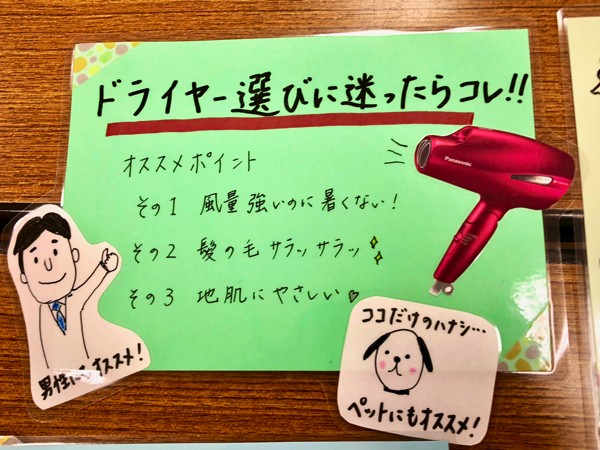 ドライヤー選びに迷ったらコレ!!
オススメポイント
その1 風量強いのに暑くない!
その2 髪の毛サラッサラッ
その3 地肌にやさしい♡
Panasonic
男性にもオススメ!
ココだけのハナシ…
ペットにもオススメ!